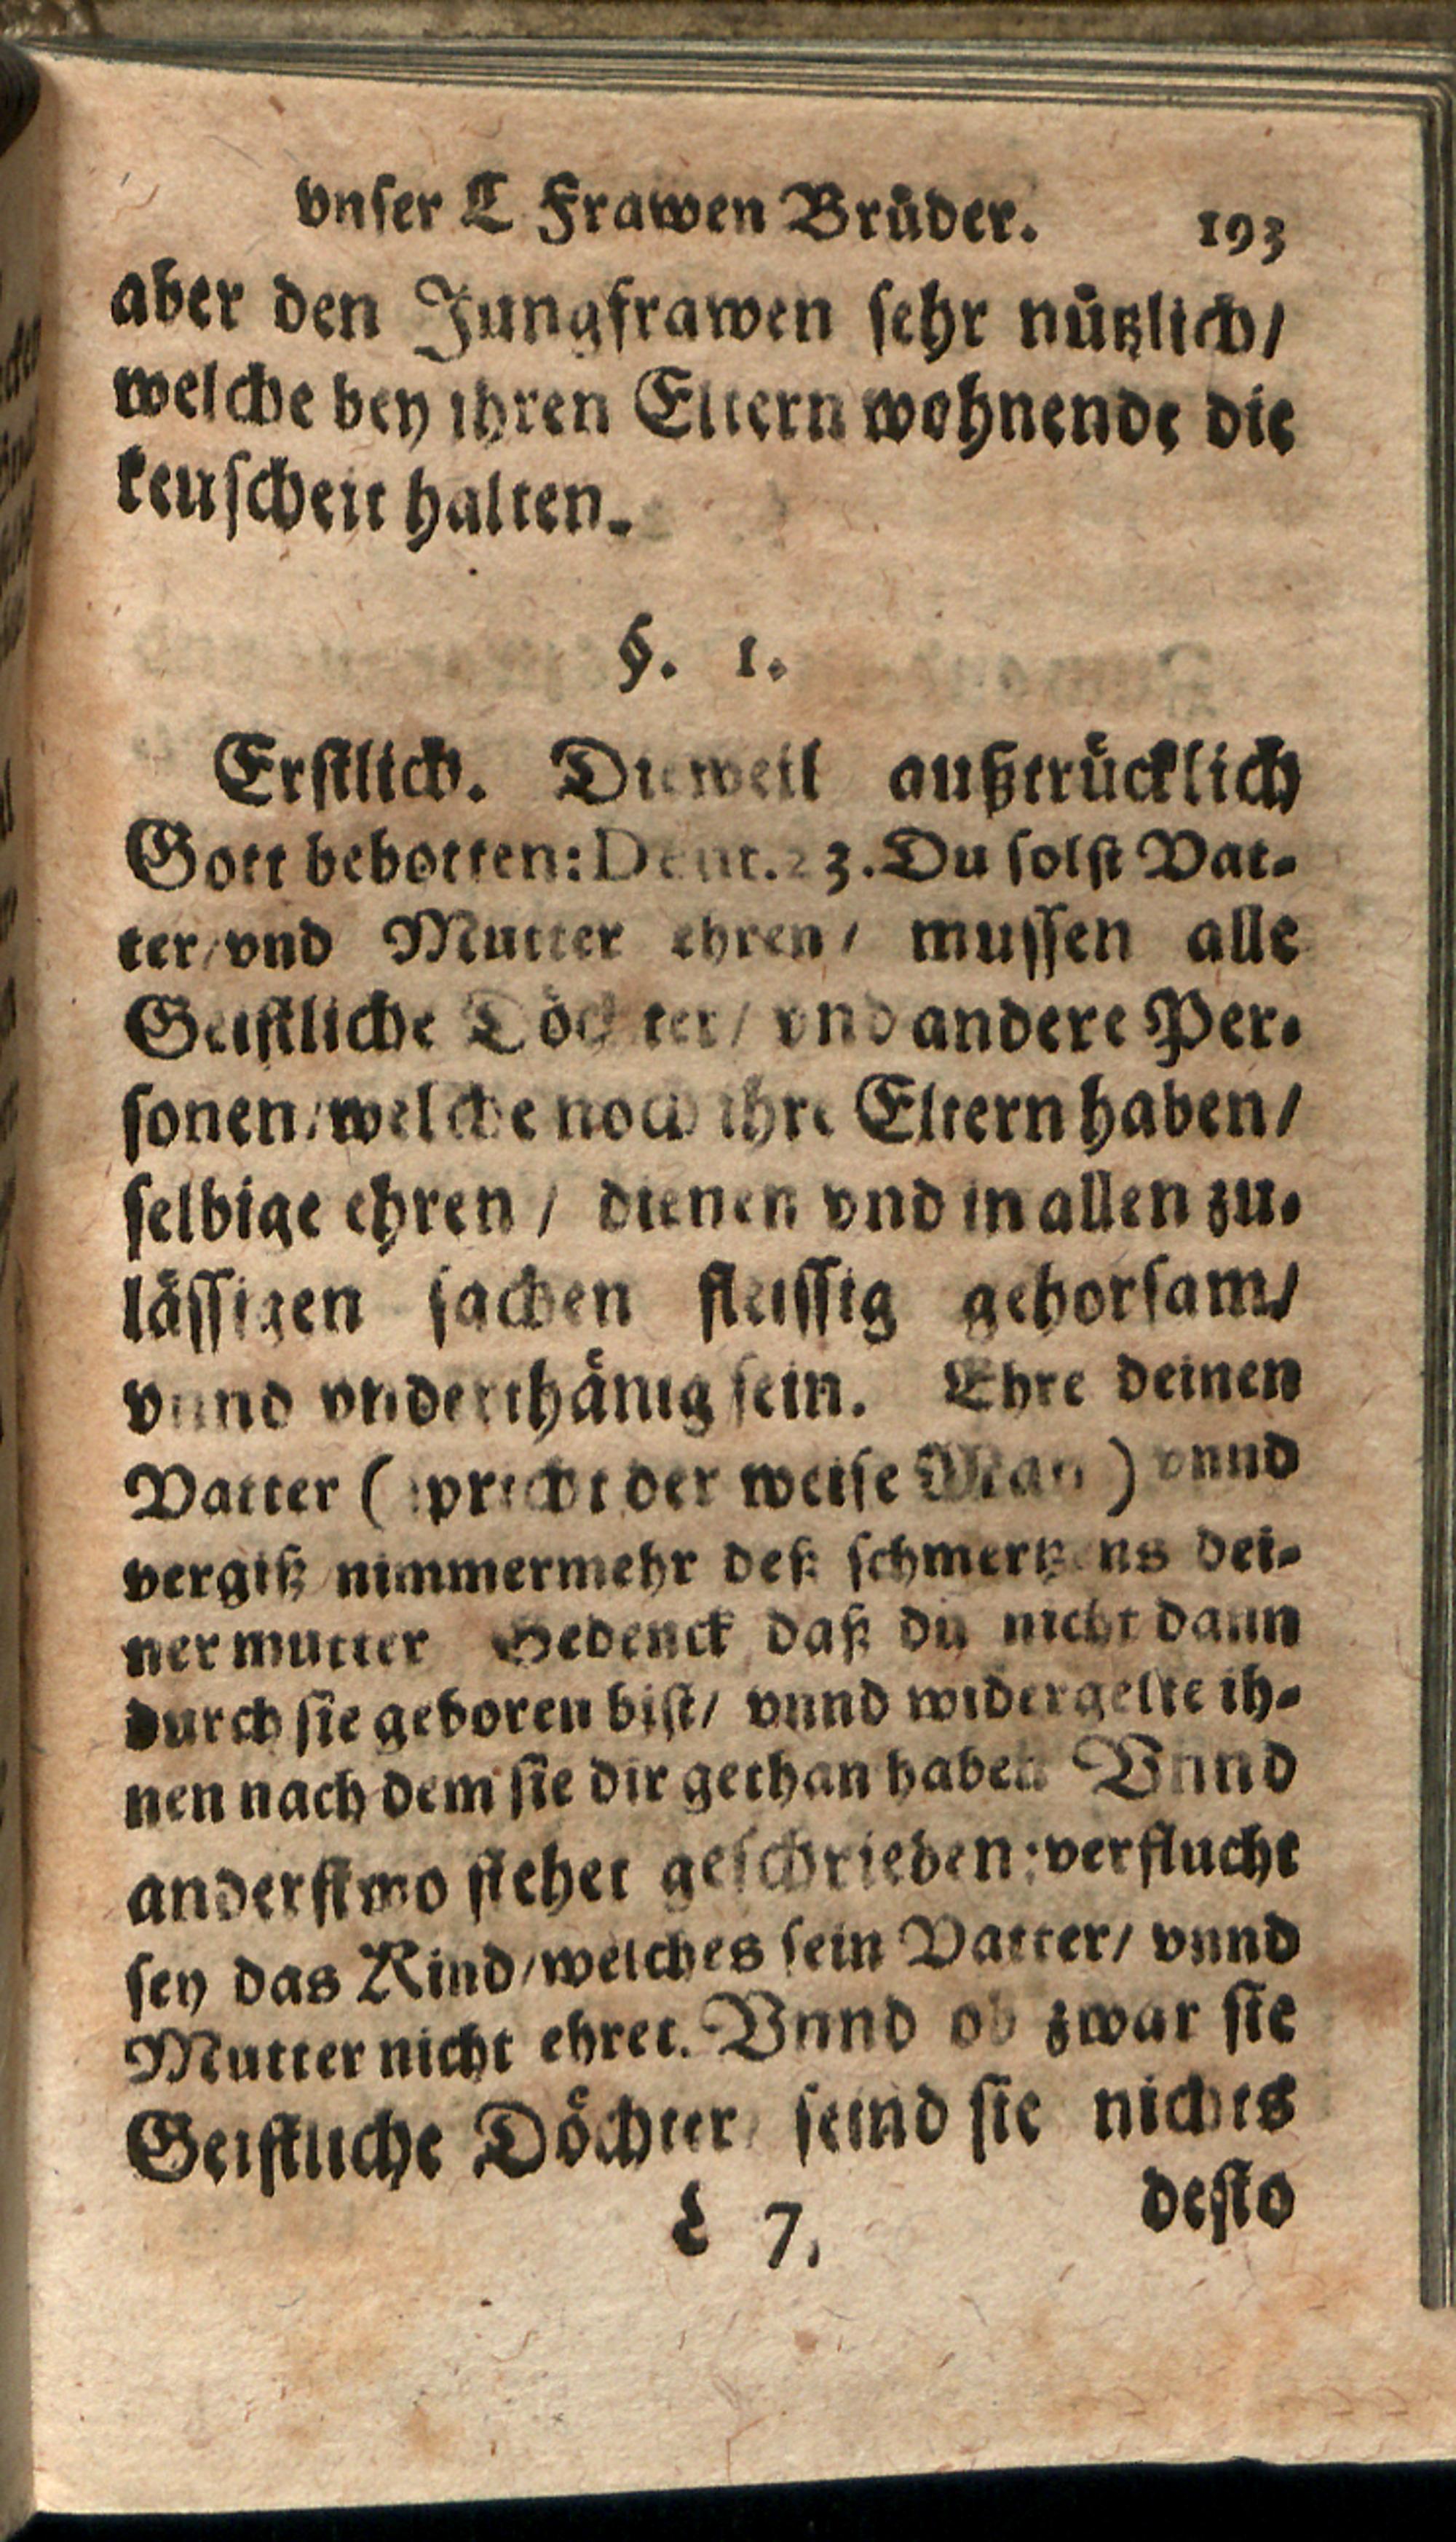 vnser L Frawen Brůder. 193
aber den Jungfrawen sehr nůtzlich/
welche bey ihren Eltern wohnende die
keuscheit halten.
§. 1.
Erstlich. Dieweil außtrůcklich
Gott bebotten: Deut. 23. Du solst Vat-
ter/vnd Mutter ehren/ mussen alle
Geistliche Döchter/ vnd andere Per-
sonen/welche noch ihre Eltern haben/
selbige ehren/ dienen vnd in allen zu-
låssigen sachen fleissig gehorsam/
vnnd vnderthånig sein. Ehre deinen
Vatter (spricht der weise Man) vnnd
vergiß nimmermehr deß schmertzens dei-
ner mutter Gedenck daß du nicht dann
durch sie geboren bist/ vnnd widergelte ih-
nen nach dem sie dir gethan haben Vnnd
anderstwo stehet geschrieben: verflucht
sey das Kind/welches sein Vatter/ vnnd
Mutter nicht ehret. Vnnd ob zwar sie
Geistliche Döchter/ seind sie nichts
L 7. desto